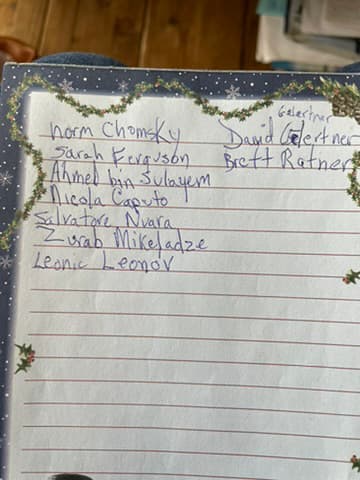 Norm Chomsky
Sarah Ferguson
Ahmed bin Sulayem
Nicola Caputo
Salvatore Nuara
Zurab Mikeladze
Leonic Leonov
Gelertner
David Gelertner
Brett Ratner